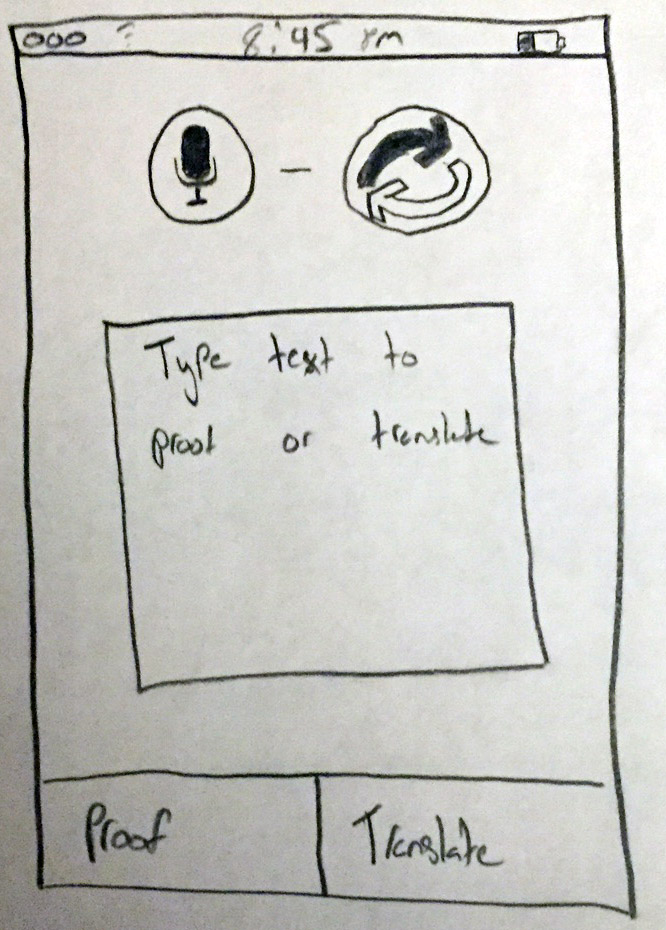 8:45 PM
Type text to
proof or translate
Proof
Translate